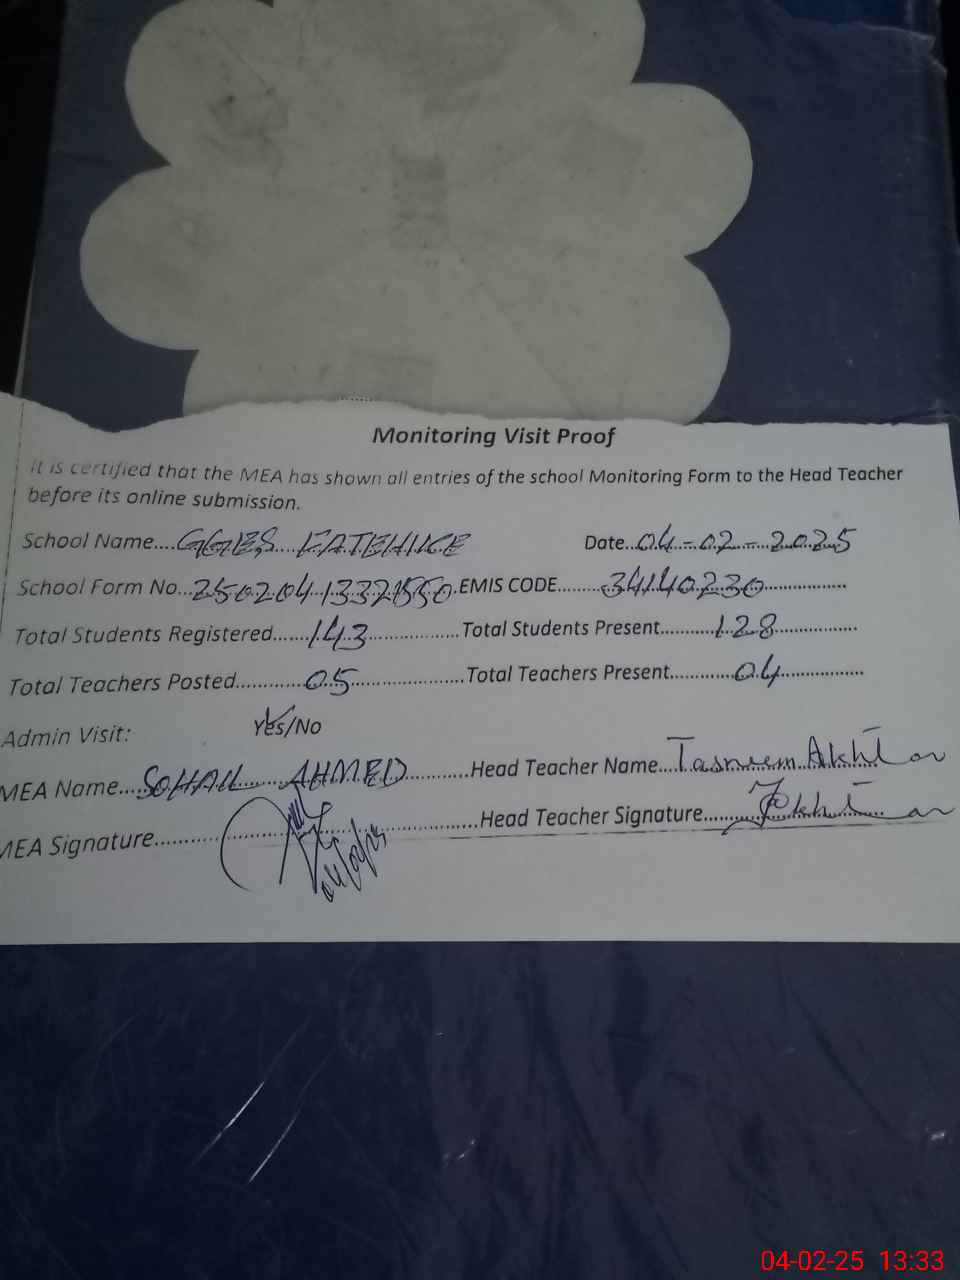 Monitoring Visit Proof
It is certified that the MEA has shown all entries of the school Monitoring Form to the Head Teacher
before its online submission.
School Name....GGES FATEHKE Date...04-02-2025
School Form No...2502041332 EMIS CODE.......34140230
Total Students Registered......143 Total Students Present...........128
Total Teachers Posted..........05 Total Teachers Present...........04
Admin Visit: Yes/No
MEA Name....SOHAIL AHMED Head Teacher Name...Tasneem Akhtar
MEA Signature........... 04/02/25 Head Teacher Signature.......
04-02-25 13:33